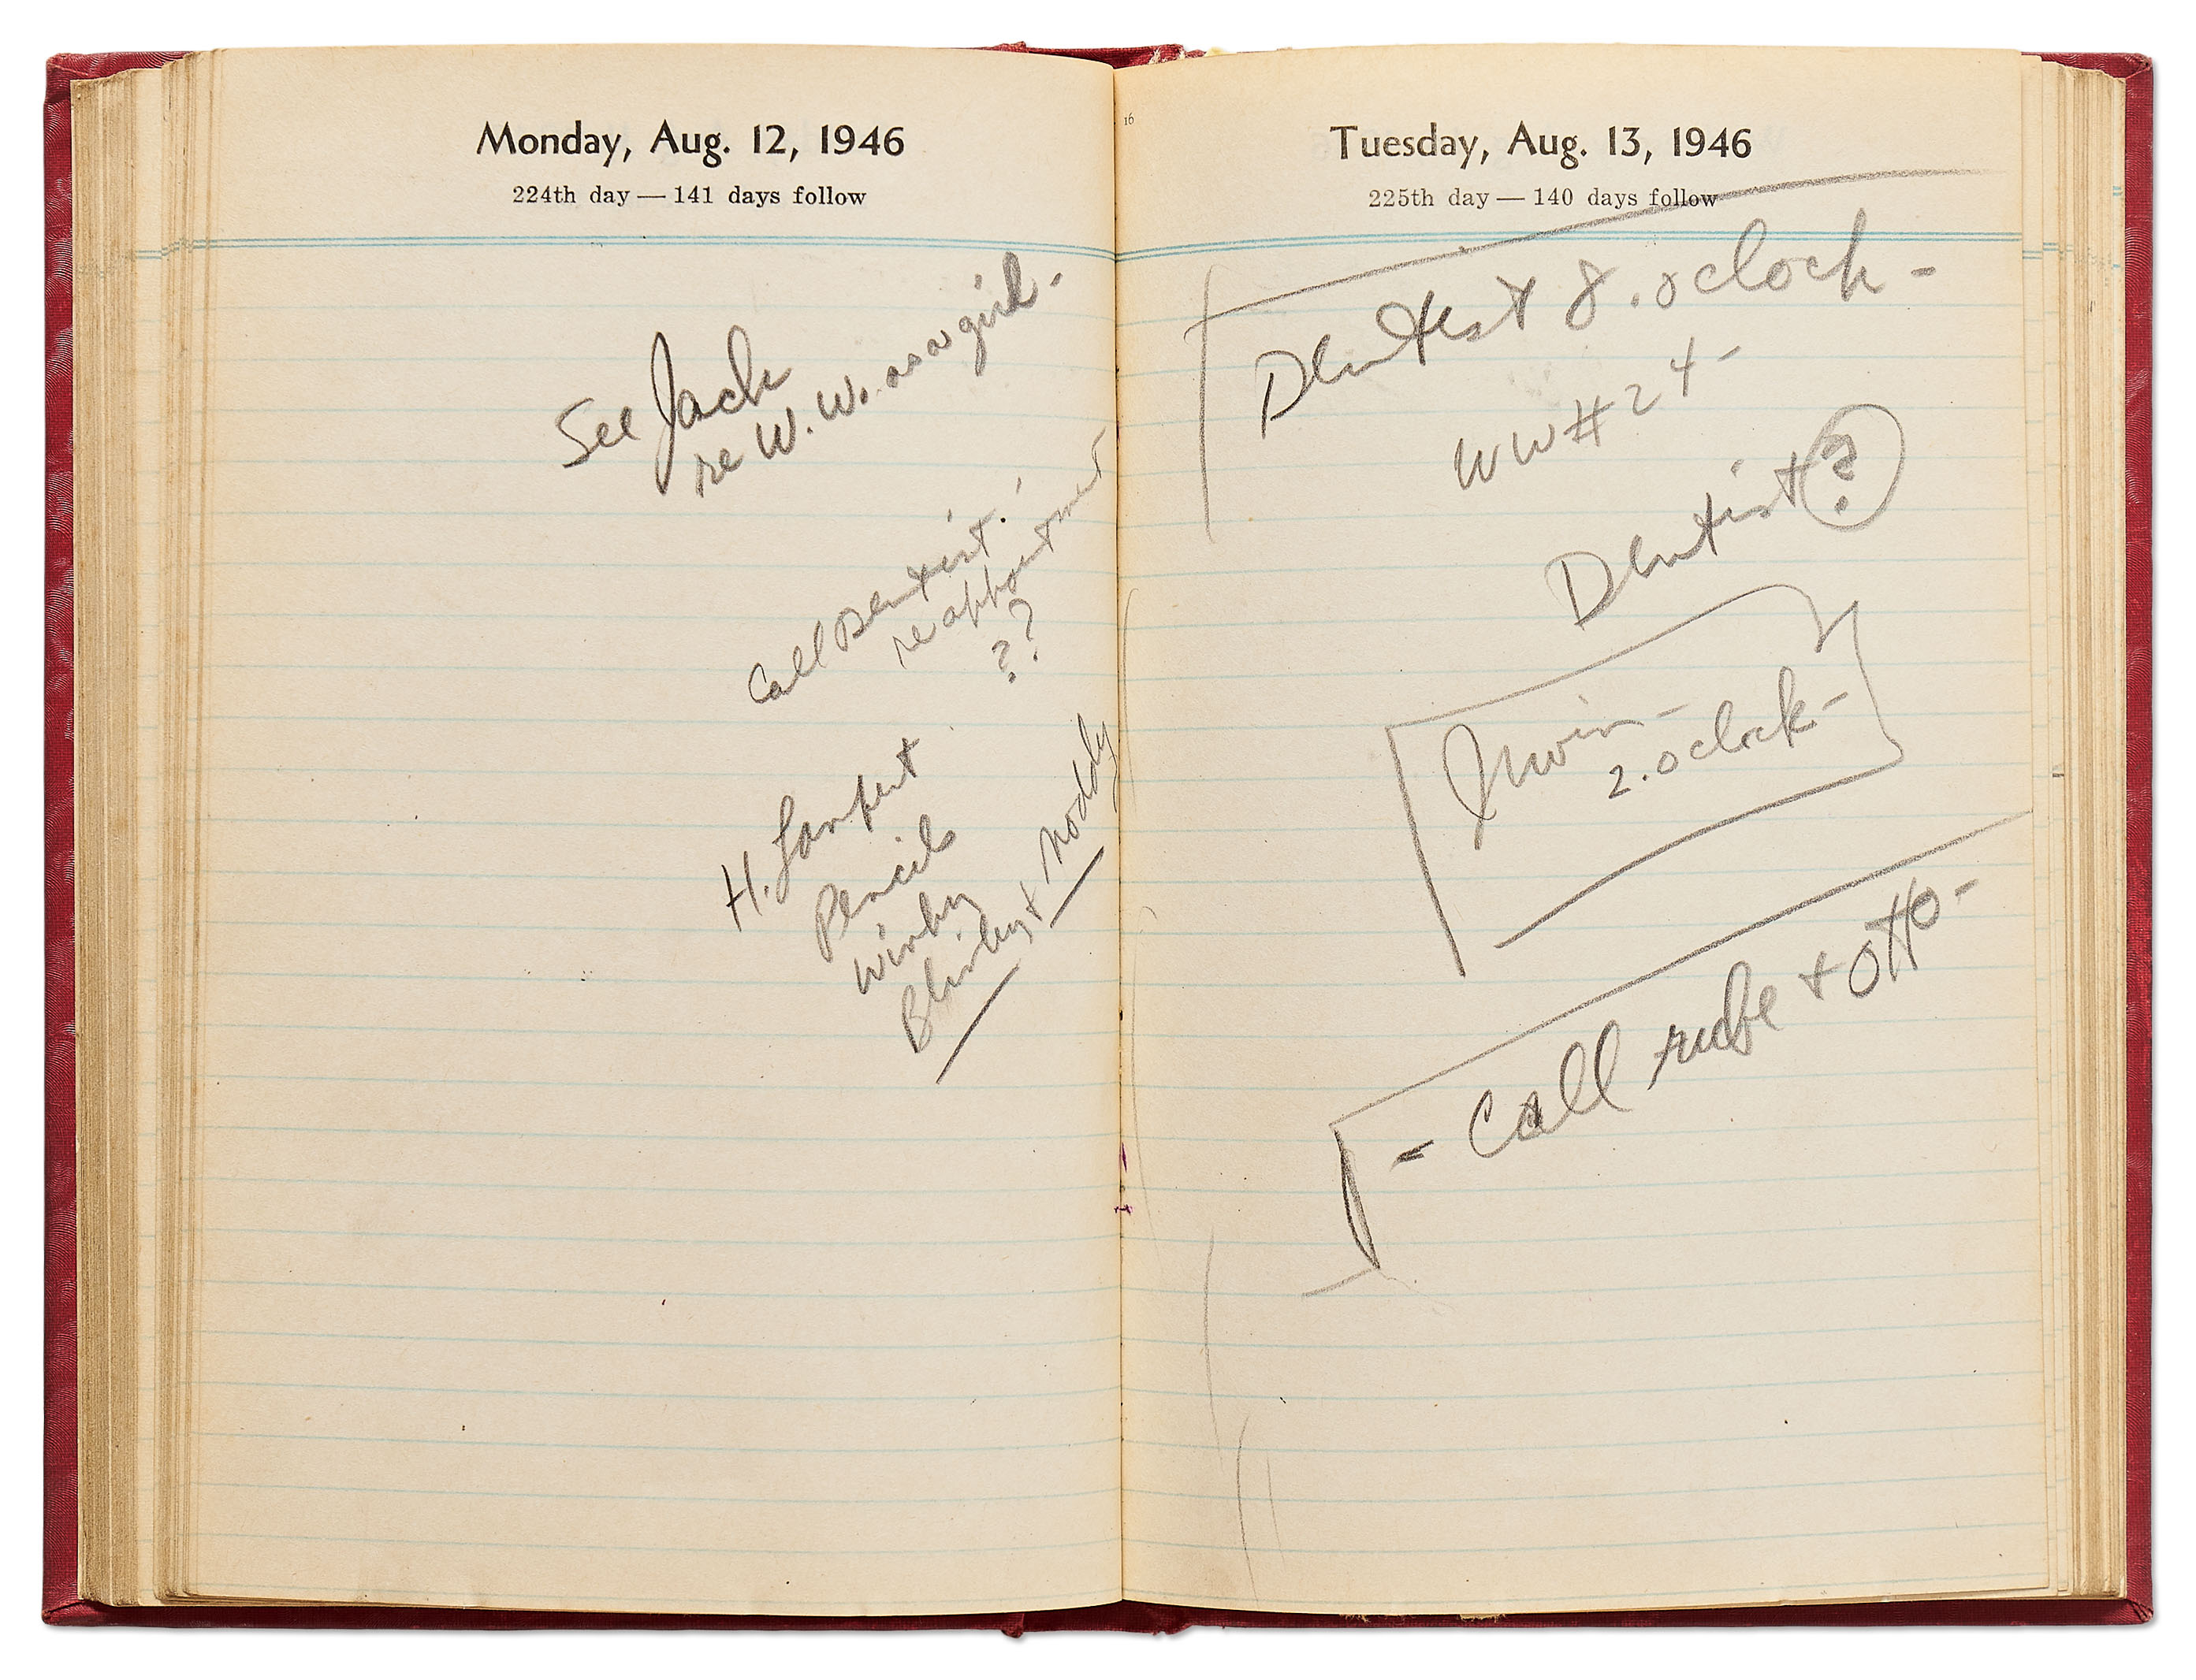 Monday, Aug. 12, 1946
224th day — 141 days follow
See Jack
re W. W. as a girl -
Call Dentist!
re appointment
??
H. Lampert
Pencils
Winky
Blinky & Noddy
16
Tuesday, Aug. 13, 1946
225th day — 140 days follow
Dentist 8. oclock -
WW # 24 -
Dentist ?
Irwin -
2. oclock -
- Call rube + otto -